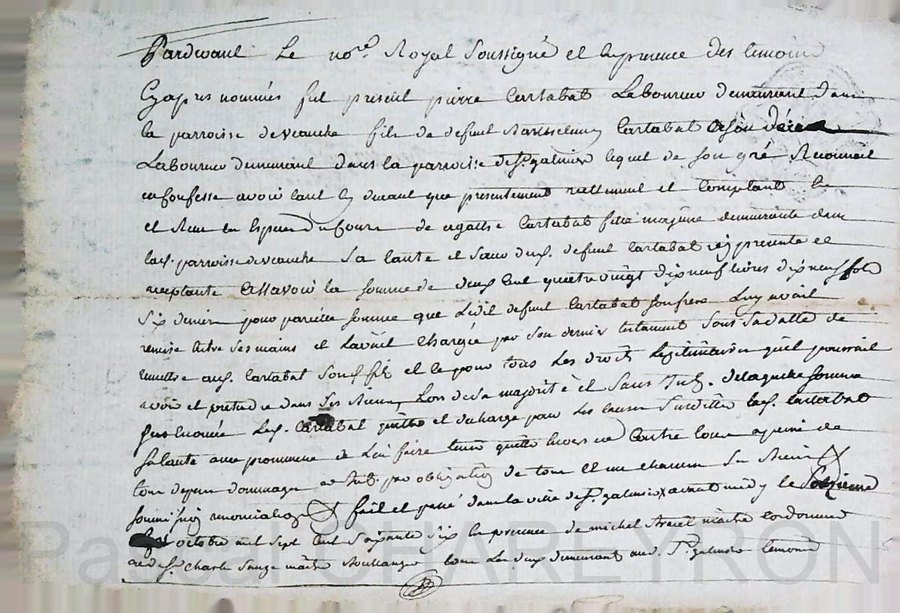 Pardevant Le no.re Royal Soussigné et En presence des temoins
Cyapres nommés fut present pierre Cartabat Laboureur demeurant dans
la parroisse de veauche fils de defunt Cartabat
Laboureur demeurant dans la parroisse de St galmier lequel de son gré
confesse avoir que presentement reellement et Comptant
et de agathe Cartabat fille majeure demeurante dans
lad. parroisse de veauche Sa tante et Sœur dud. defunt Cartabat icy presente et
acceptante assavoir la somme de deux Cent quatre vingt dix neuf livres dix neuf sols
Six deniers pour pareille somme que Led. defunt Cartabat son frere Luy avoit
remise entre ses mains et L'avoit Chargée par son dernier testament Sous Sa datte de
remettre aud. Cartabat Son fils et ce pour tous Les droits Legitimaires qu'il pourroit
avoir et pretendre dans Ses Biens Lors de sa majorité et Sans de laquelle somme
Led. Cartabat quitte et decharge pour Les Causes Susdittes lad. Cartabat
Sa tante avec promesse de L'en faire tenir quitte Envers et Contre tous a peine de
tous depens dommages par obligation de tous Et un chacun Ses Biens
soumission renonciation fait et passé dans la ville de St galmier avant midy le
octobre mil sept Cent Soixante Six En presence de michel maitre Cordonnier
et de Sr Charle maitre Boullanger tous Les deux demeurant aud. St galmier temoins
Pascal CHARLEYRON